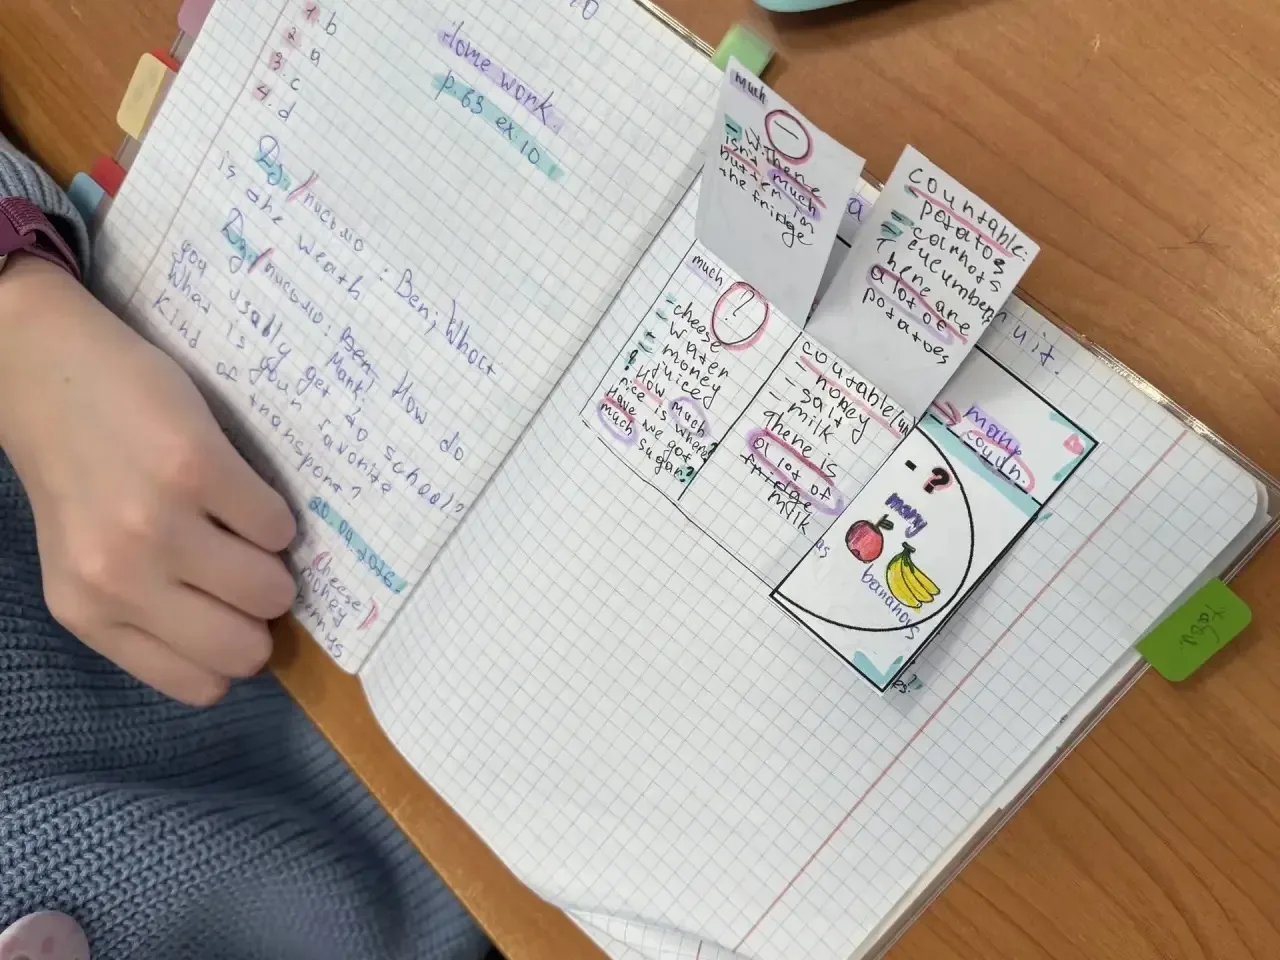 1. b
2. a
3. c
4. d
Home work.
p. 63 ex. 10.
письмо : Ben; What
is the weath
письмо: Ben How do
you usally get to school?
Mark!
What is your favorite
kind of transport?
20.04.2026.
Cheese
money
much
-
There
isn't much
butter in
the fridge
countable:
potatos
- carrots
- cucumber
There are
a lot of
potatoes
uit.
much
?
- cheese
- water
- money
juice
How much
rice is where?
Have we got
much sugar?
countable/un
honey
- salt
- milk
There is
a lot of
fridge
milk
many
coun.
- ?
many
bananas
es?